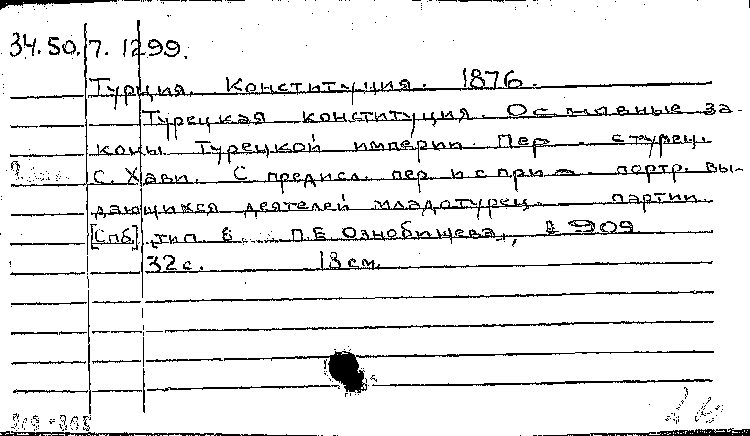 34.50.7.1299.
Турция. Конституция. 1876.
Турецкая конституция. Основные за-
коны Турецкой империи. Пер. с турец.
С. Хави. С предисл. пер. и с прил. портр. вы-
дающихся деятелей младотурец. партии.
[Спб], тип. б. П.Б. Ознобищева, 1909
32 с. 18 см.